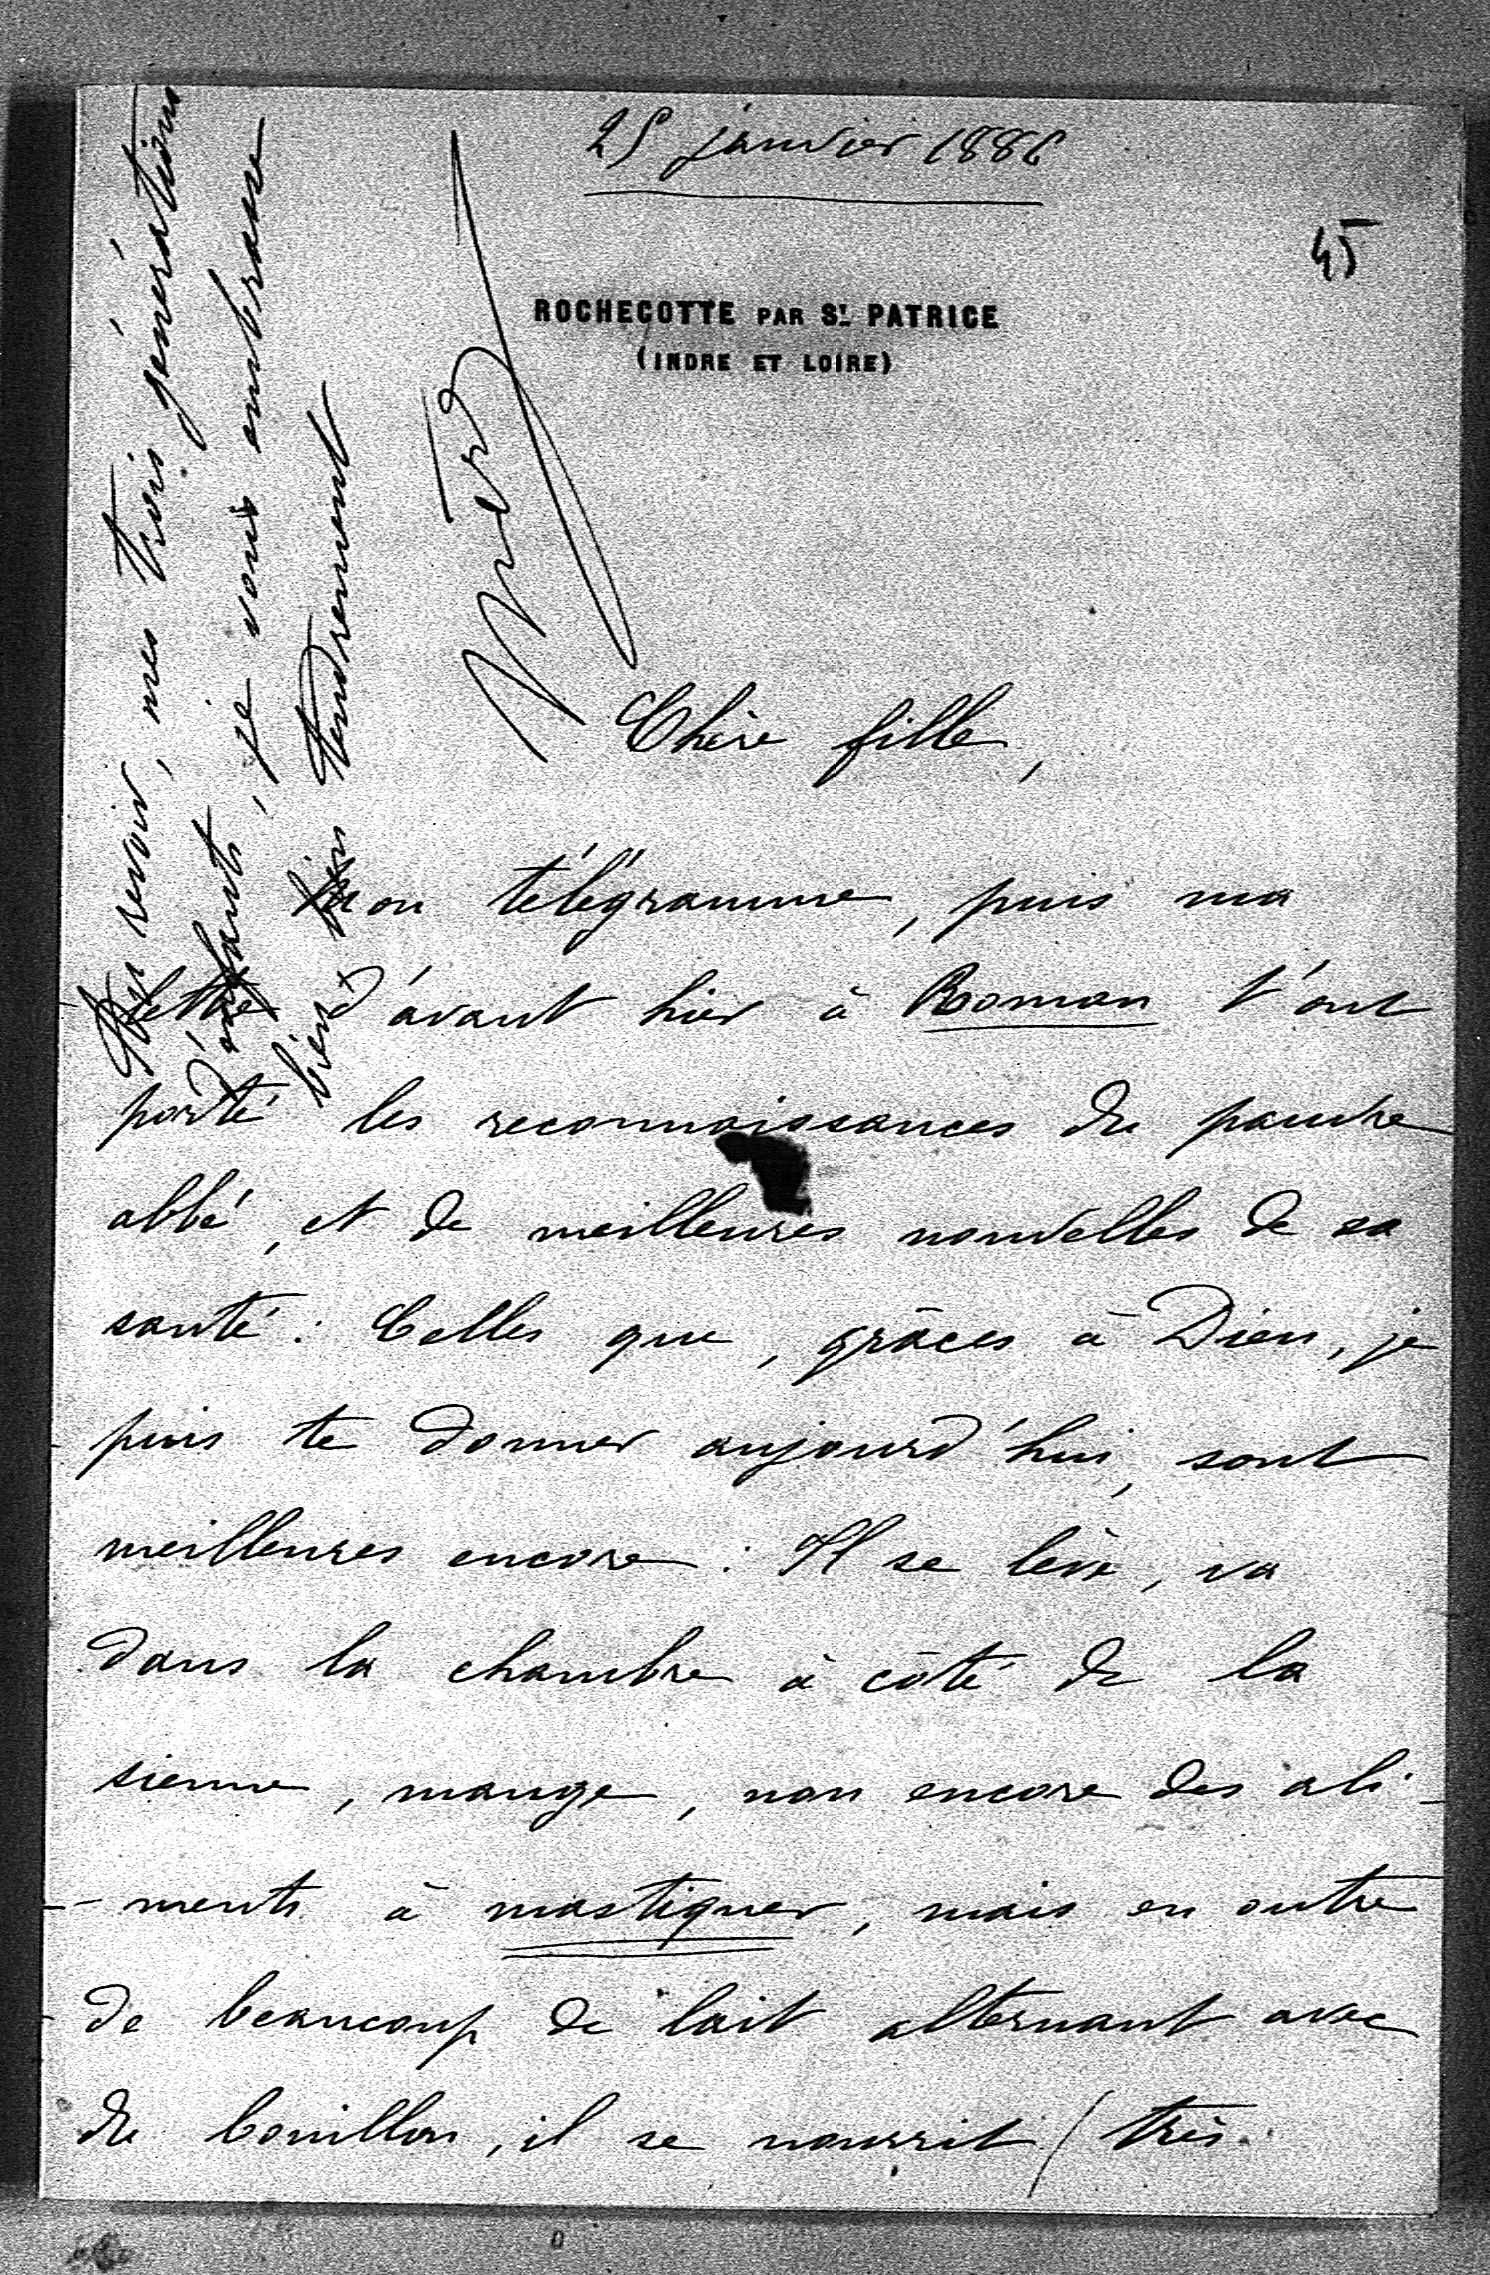 25 janvier 1886
45
ROCHECOTTE PAR ST. PATRICE
(INDRE ET LOIRE)
Chère fille,
Mon télégramme, puis ma
lettre d'avant hier à Roman t'ont
porté les reconnaissances du pauvre
abbé, et de meilleures nouvelles de sa
santé : Celles que, grâces à Dieu, je
puis te donner aujourd'hui, sont
meilleures encore : Il se lève, va
dans la chambre à côté de la
sienne, mange, non encore des ali-
-ments à mastiquer, mais en outre
de beaucoup de lait alternant avec
du bouillon, il se nourrit (très
Au revoir, mes trois générations
d'enfants, je vous embrasse
bien bien tendrement